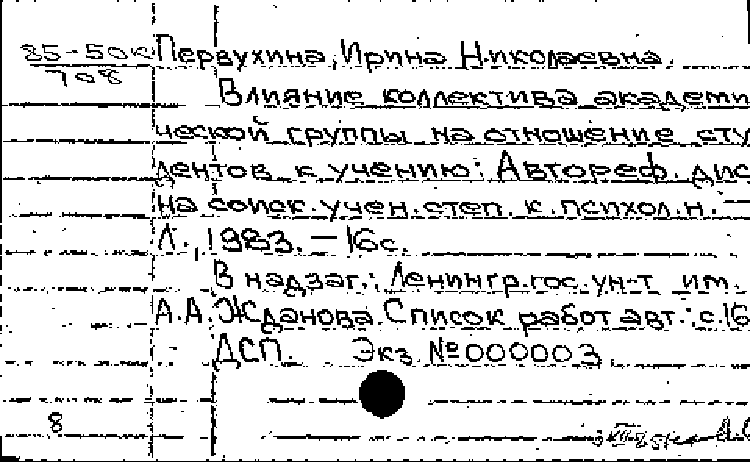 85-50к Первухина, Ирина Николаевна.
708
Влияние коллектива академи
ческой группы на отношение сту
дентов к учению: Автореф. дис
на соиск. учен. степ. к. психол. н. —
Л., 1983. — 16с.
В надзаг.: Ленингр. гос. ун-т им.
А.А. Жданова. Список работ авт.: с.16
ДСП. Экз. №000003
8